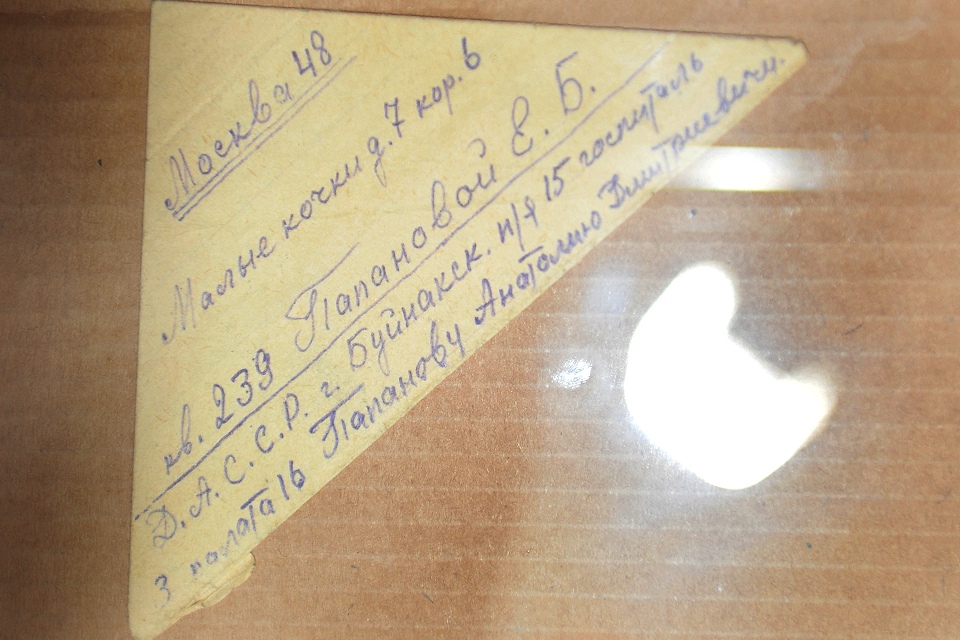 Москва 48
Малые кочки д. 7 кор. 6
кв. 239 Папановой Е. Б.
Д. А. С. С. Р. г. Буйнакск. п/я 15 госпиталь
3 палата 16 Папанову Анатолию Дмитриевичи.